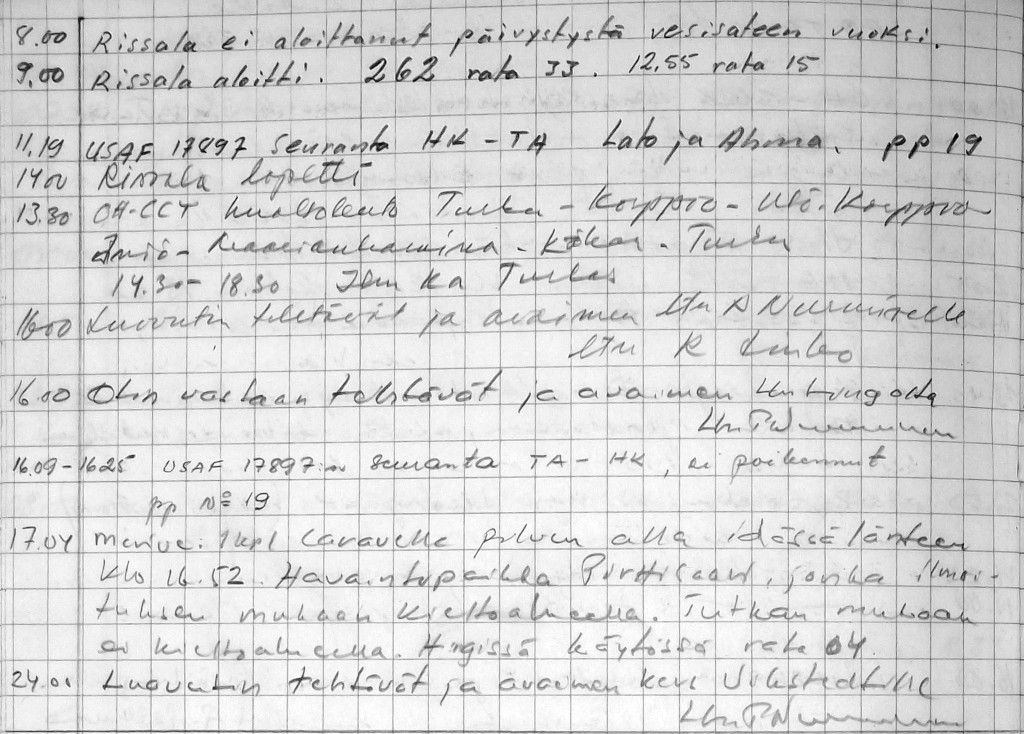 8.00 Rissala ei aloittanut päivystystä vesisateen vuoksi.
9.00 Rissala aloitti. 262 rata 33. 12.55 rata 15
11.19 USAF 17897 seuranta HK - TA Lato ja Ahma. pp 19
14.00 Rissala lopetti
13.30 OH-CCT huoltolento Turku - Korppoo - Utö - Korppoo
- Maarianhamina - Kökar - Turku
14.30 - 18.30 Ilm Ka Turku
16.00 Luovutin tehtävät ja avaimen ltn Nurmiselle
ltn R
16.00 Otin vastaan tehtävät ja avaimen
ltn P Nurminen
16.09 - 16.25 USAF 17897:n seuranta TA - HK, ei poikennut
pp No 19
17.04 Merive: 1 kpl Caravelle pilven alla idässä länteen
klo 16.52. Havaintopaikka Pirttisaari, jonka ilmoi-
tuksen mukaan kieltoalueella. Tutkan mukaan
ei kieltoalueella. H:gissä käytössä rata 04.
24.00 Luovutin tehtävät ja avaimen kers Vikstedtille
ltn P Nurminen